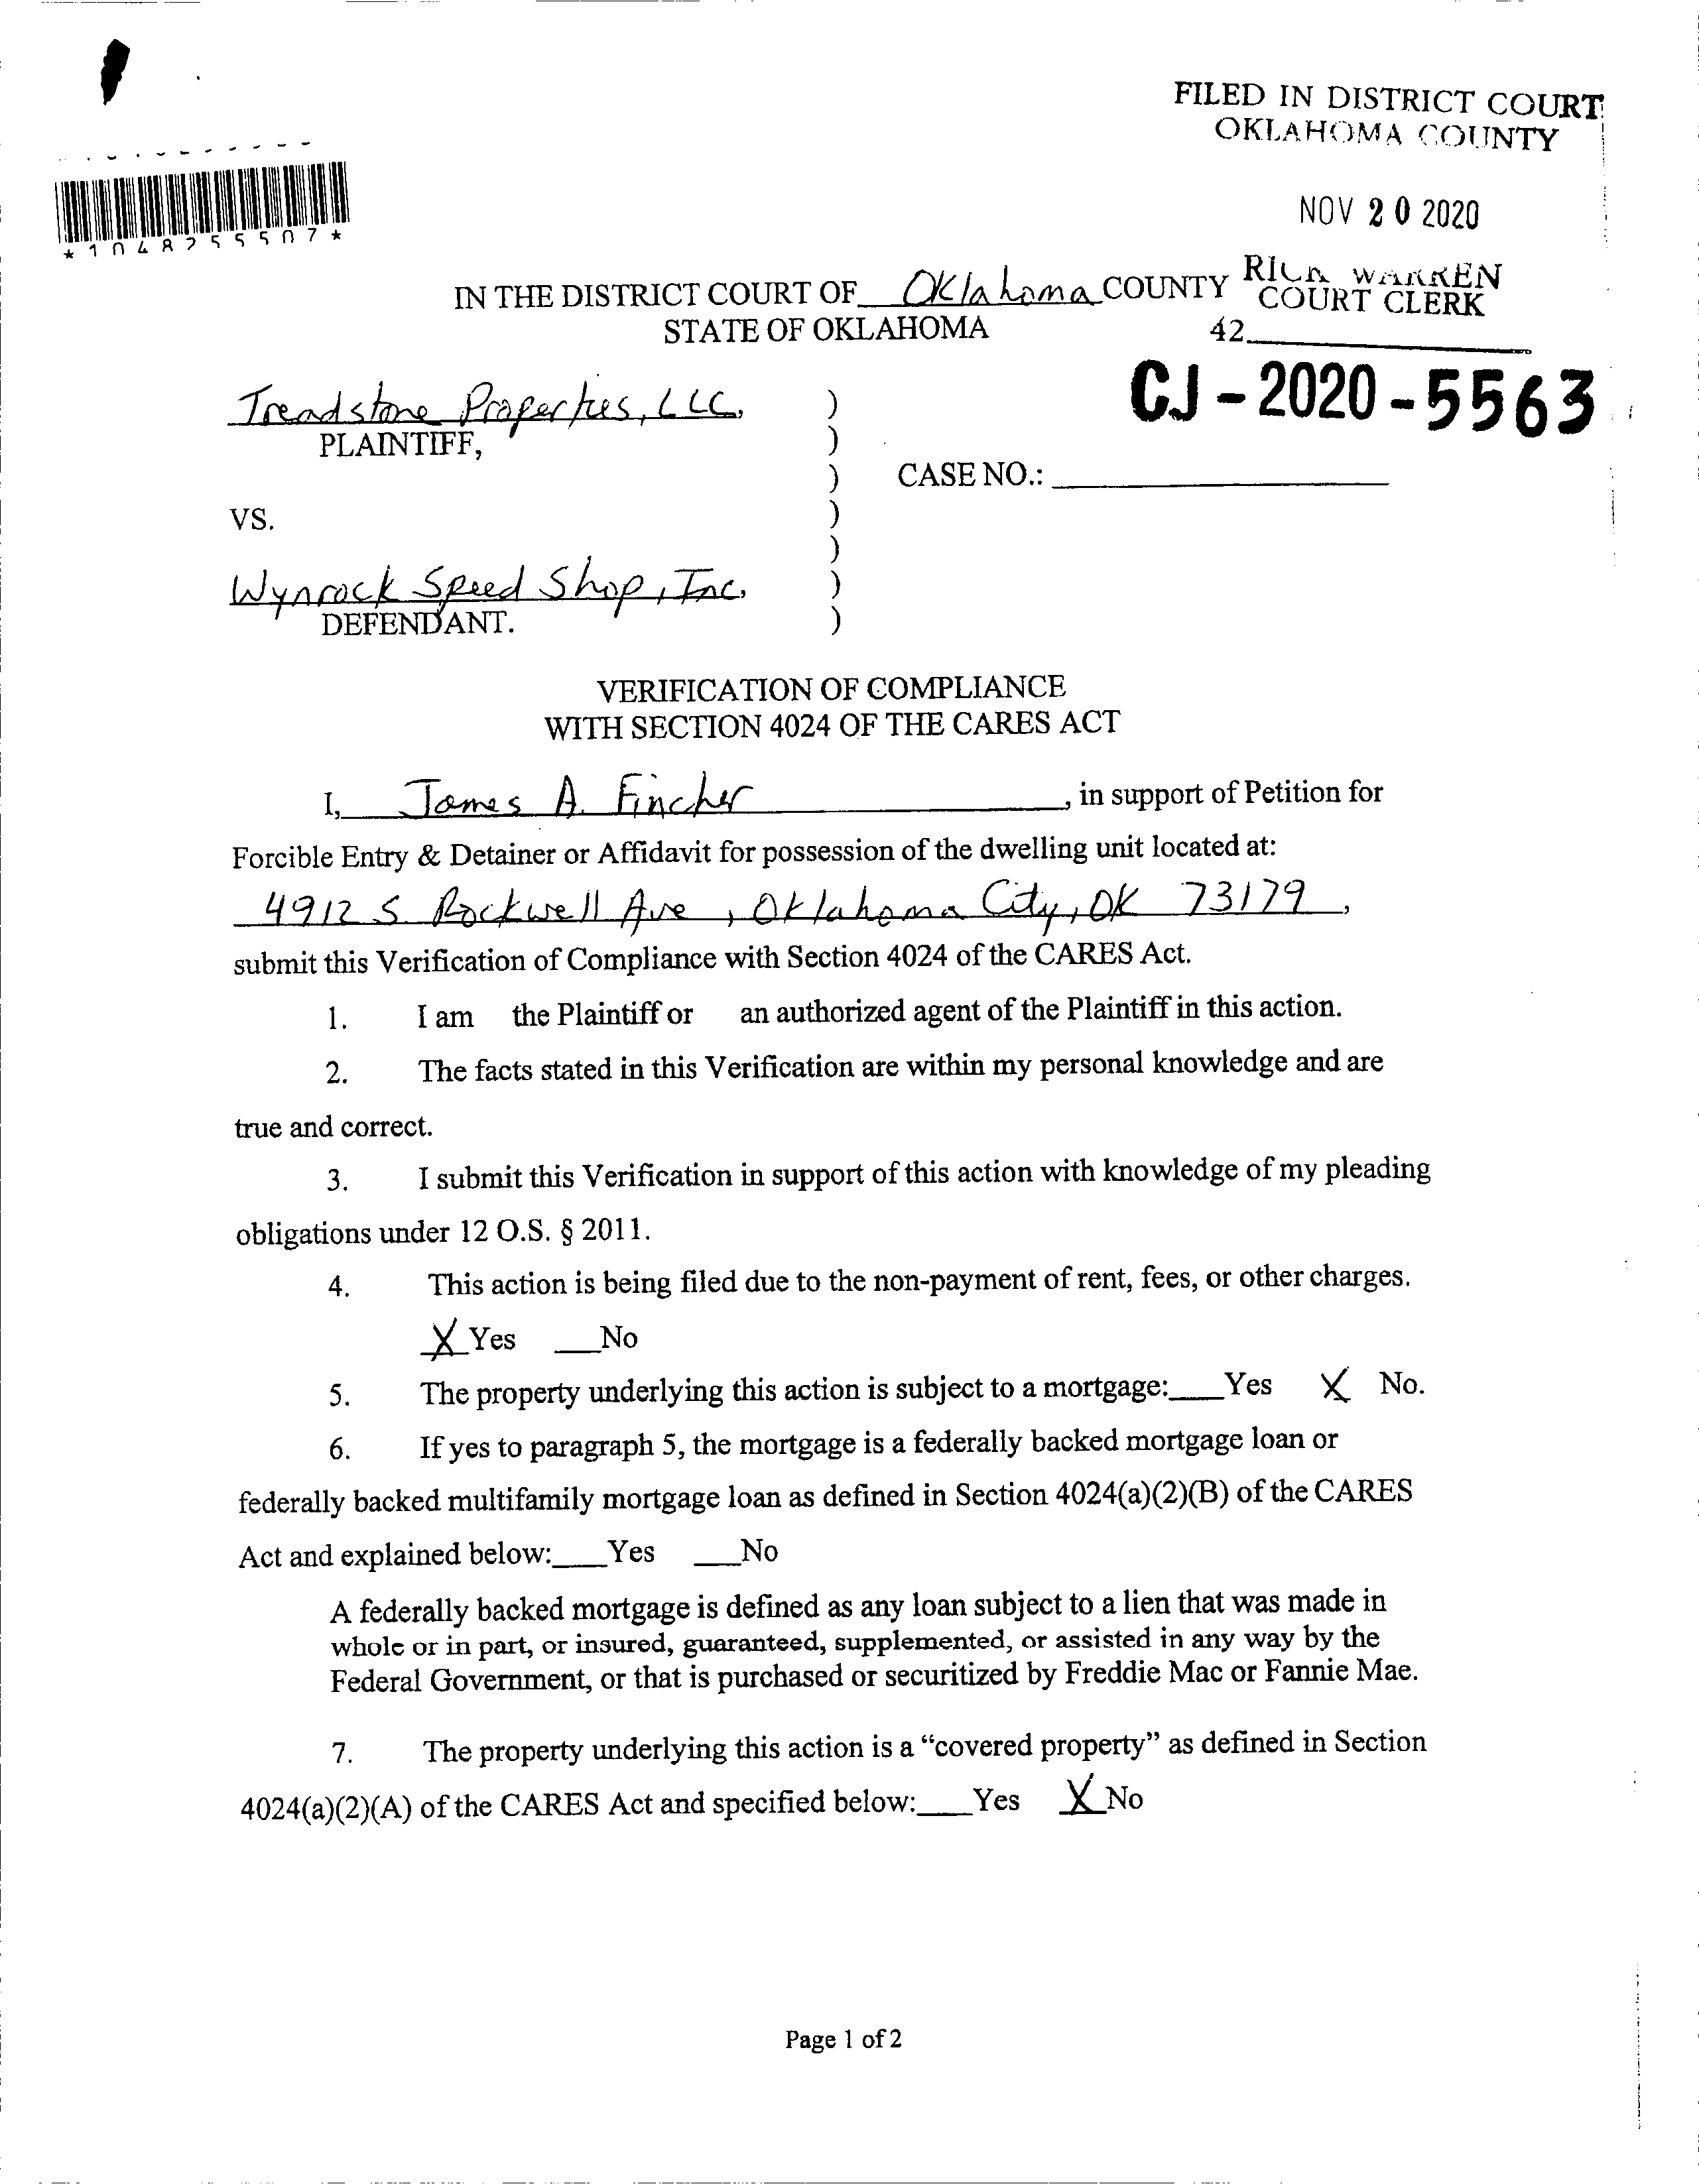 FILED IN DISTRICT COURT
OKLAHOMA COUNTY
NOV 20 2020
*1048255507*
RICK WARREN
IN THE DISTRICT COURT OF Oklahoma COUNTY
COURT CLERK
STATE OF OKLAHOMA
42
CJ-2020-5563
Treadstone Properties, LLC, )
PLAINTIFF, )
) CASE NO.:
VS. )
)
Wynrock Speed Shop, Inc. )
DEFENDANT. )
VERIFICATION OF COMPLIANCE
WITH SECTION 4024 OF THE CARES ACT
I, James A. Fincher, in support of Petition for
Forcible Entry & Detainer or Affidavit for possession of the dwelling unit located at:
4912 S. Rockwell Ave, Oklahoma City, OK 73179,
submit this Verification of Compliance with Section 4024 of the CARES Act.
1. I am the Plaintiff or an authorized agent of the Plaintiff in this action.
2. The facts stated in this Verification are within my personal knowledge and are
true and correct.
3. I submit this Verification in support of this action with knowledge of my pleading
obligations under 12 O.S. § 2011.
4. This action is being filed due to the non-payment of rent, fees, or other charges.
X Yes ___No
5. The property underlying this action is subject to a mortgage:___Yes X No.
6. If yes to paragraph 5, the mortgage is a federally backed mortgage loan or
federally backed multifamily mortgage loan as defined in Section 4024(a)(2)(B) of the CARES
Act and explained below:___Yes ___No
A federally backed mortgage is defined as any loan subject to a lien that was made in
whole or in part, or insured, guaranteed, supplemented, or assisted in any way by the
Federal Government, or that is purchased or securitized by Freddie Mac or Fannie Mae.
7. The property underlying this action is a “covered property” as defined in Section
4024(a)(2)(A) of the CARES Act and specified below:___Yes X No
Page 1 of 2